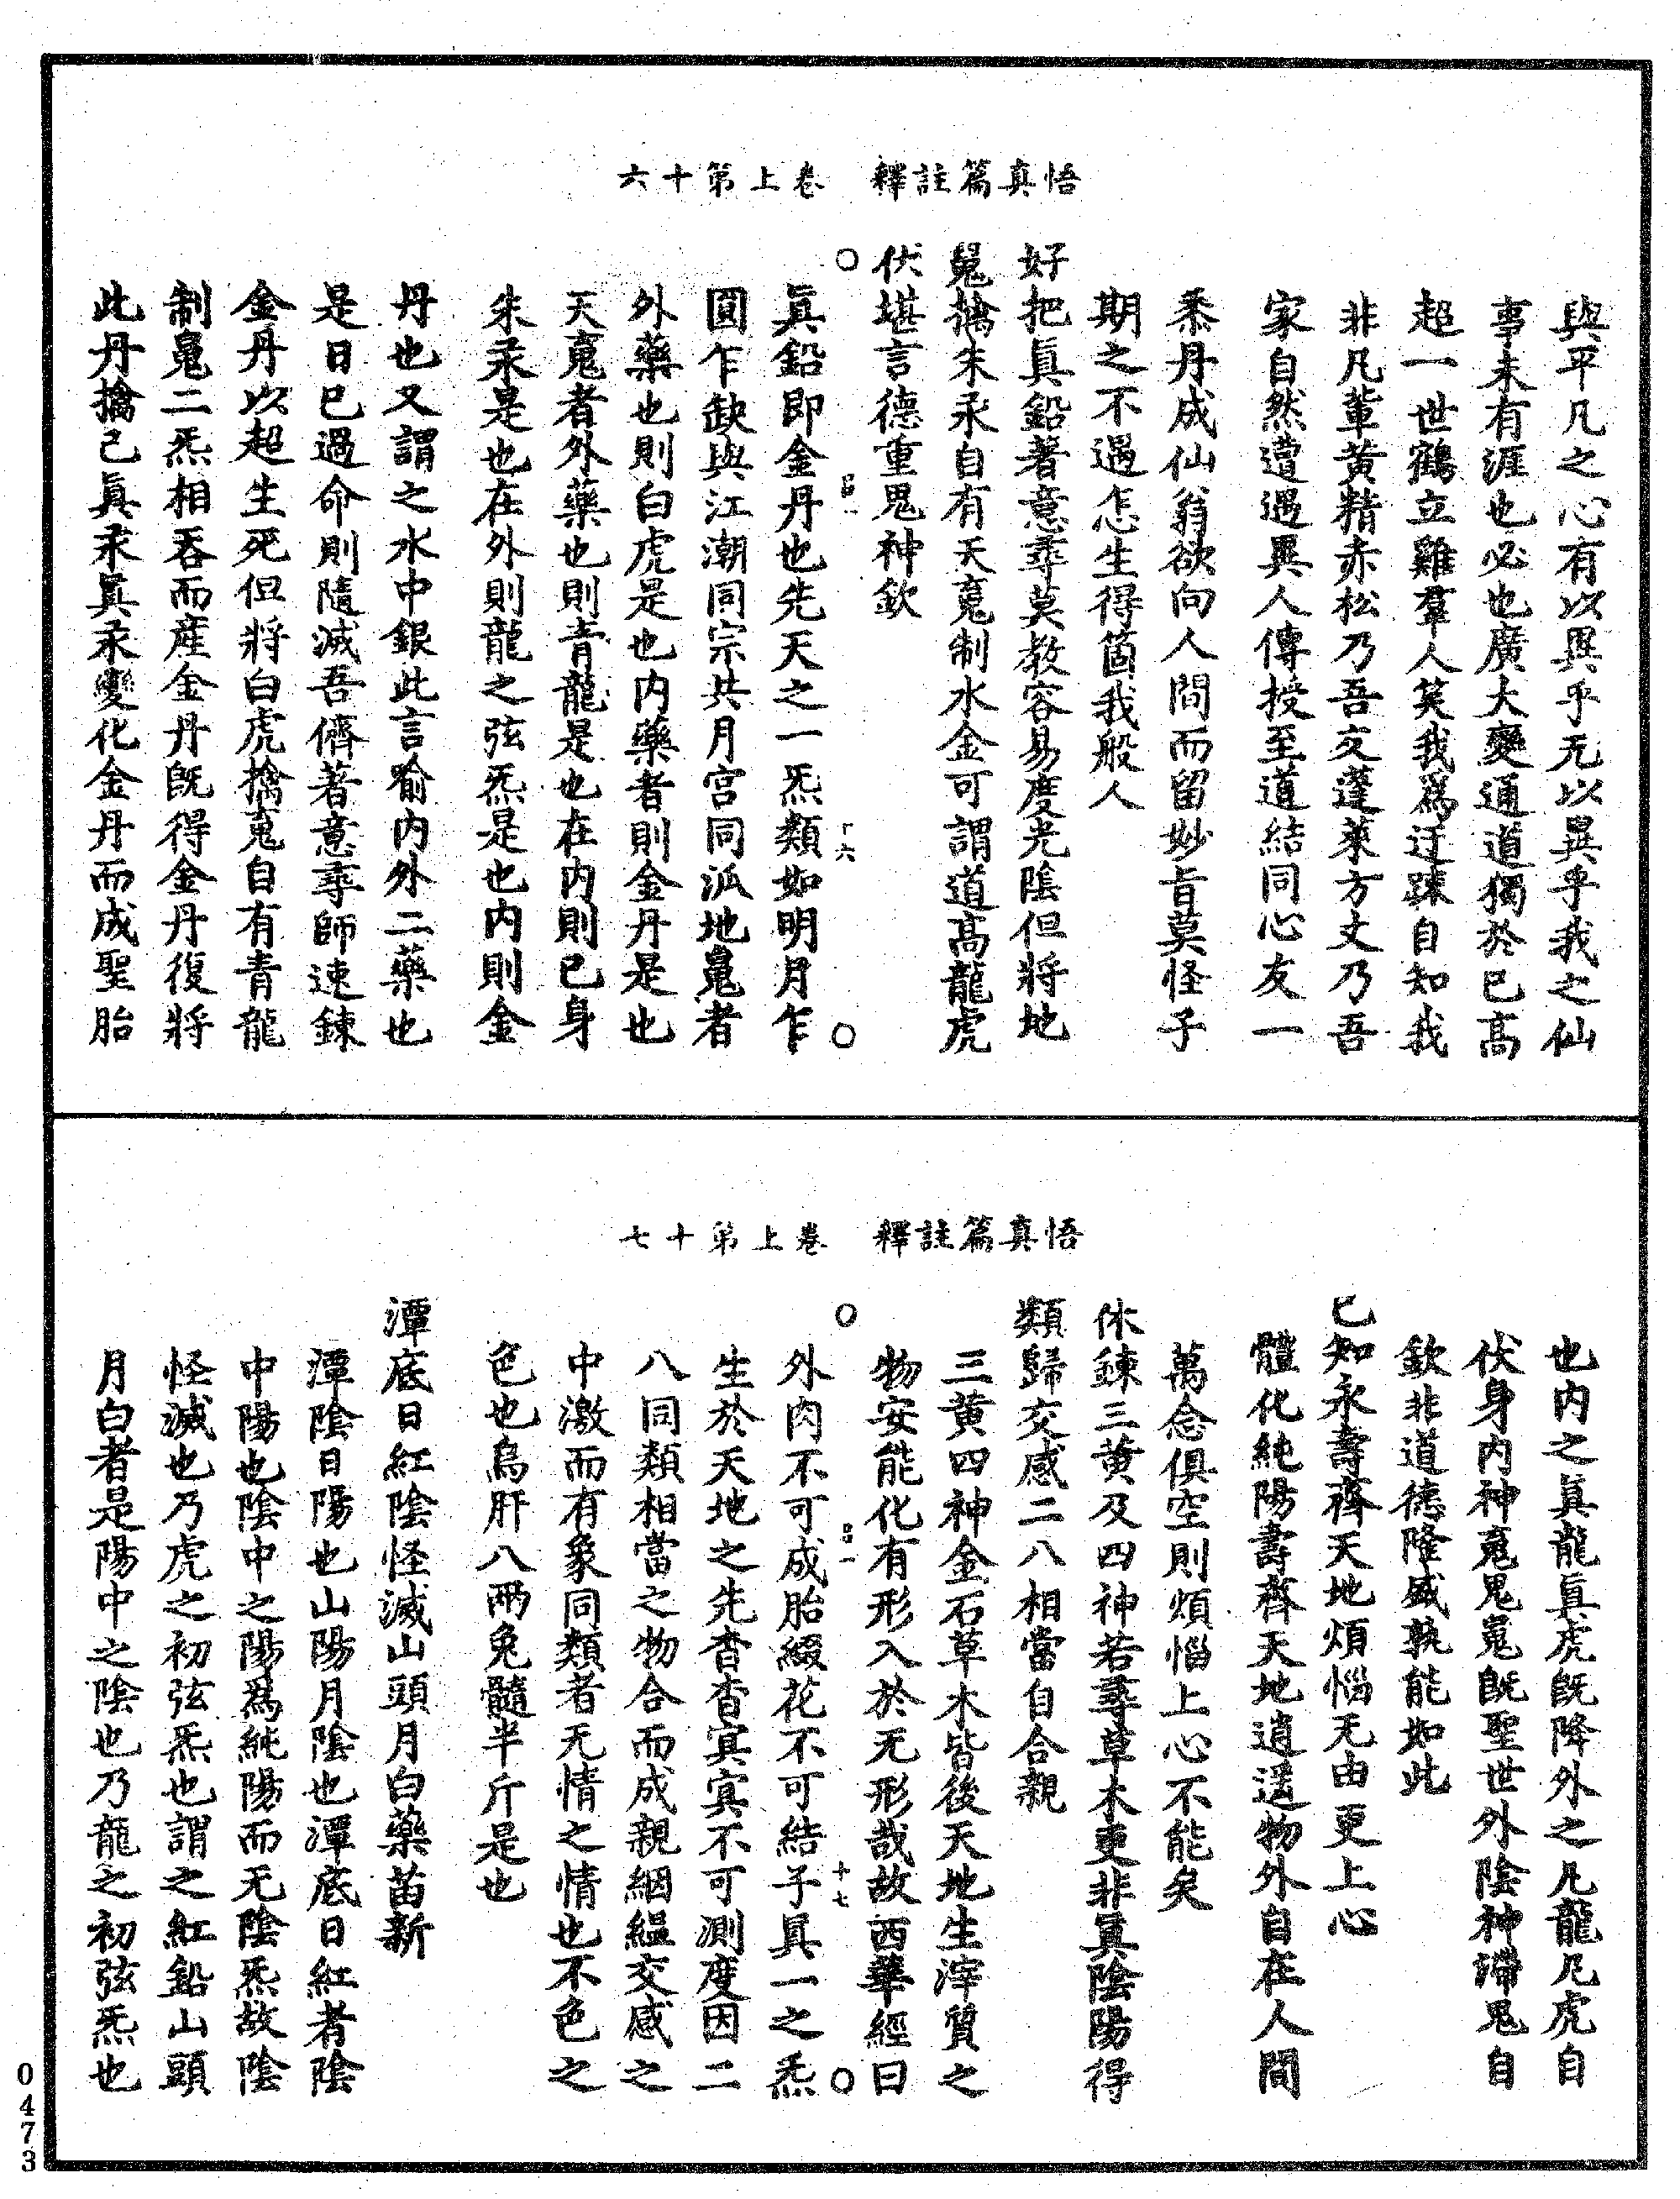 悟真篇註釋　卷上第十六
與平凡之心有以異乎无以異乎我之仙
事未有涯也必也廣大變通道獨於已高
超一世鶴立雞羣人笑我爲迂踈自知我
非凡輩黄精赤松乃吾交蓬萊方丈乃吾
家自然遭遇異人傳授至道結同心友一
黍丹成仙翁欲向人間而留妙旨莫怪子
期之不遇怎生得箇我般人
好把眞鉛著意尋莫教容易度光陰但將地
䰟擒朱汞自有天䰟制水金可謂道髙龍虎
伏堪言德重鬼神欽
眞鉛即金丹也先天之一炁類如明月乍
圓乍缺與江潮同宗共月宫同泒地䰟者
外藥也則白虎是也内藥者則金丹是也
天䰟者外藥也則青龍是也在内則已身
朱汞是也在外則龍之弦炁是也内則金
丹也又謂之水中銀此言喻内外二藥也
是日已過命則隨滅吾儕著意尋師速鍊
金丹以超生死但將白虎擒䰟自有青龍
制䰟二炁相吞而産金丹旣得金丹復將
此丹擒已眞汞眞汞變化金丹而成聖胎
十六
悟真篇註釋　卷上第十七
也内之眞龍眞虎旣降外之凡龍凡虎自
伏身内神䰟鬼䰟旣聖世外陰神滯鬼自
欽非道德隆盛孰能如此
已知永壽齊天地煩惱无由更上心
體化純陽壽齊天地逍遥物外自在人間
萬念俱空則煩惱上心不能矣
休鍊三黄及四神若尋草木更非眞陰陽得
類歸交感二八相當自合親
三黄四神金石草木皆後天地生滓質之
物安能化有形入於无形哉故西華經曰
外肉不可成胎綴花不可結子真一之炁
生於天地之先杳杳㝠㝠不可測度因二
八同類相當之物合而成親絪緼交感之
中激而有象同類者无情之情也不色之
色也烏肝八兩兔髓半斤是也
潭底日紅陰怪滅山頭月白藥苗新
潭陰日陽也山陽月陰也潭底日紅者陰
中陽也陰中之陽爲純陽而无陰炁故陰
怪滅也乃虎之初弦炁也謂之紅鉛山頭
月白者是陽中之陰也乃龍之初弦炁也
十七
0473